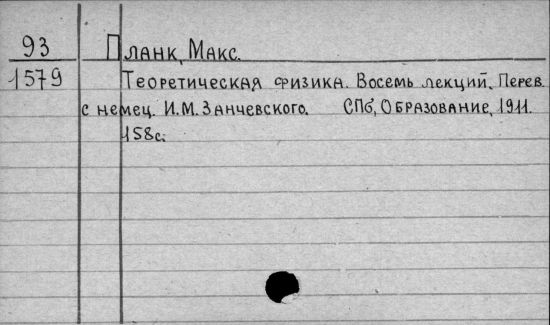 93 Планк, Макс.
1579 Теоретическая физика. Восемь лекций. Перев.
с немец. И.М.Занчевского. СПб, Образование, 1911.
158с.